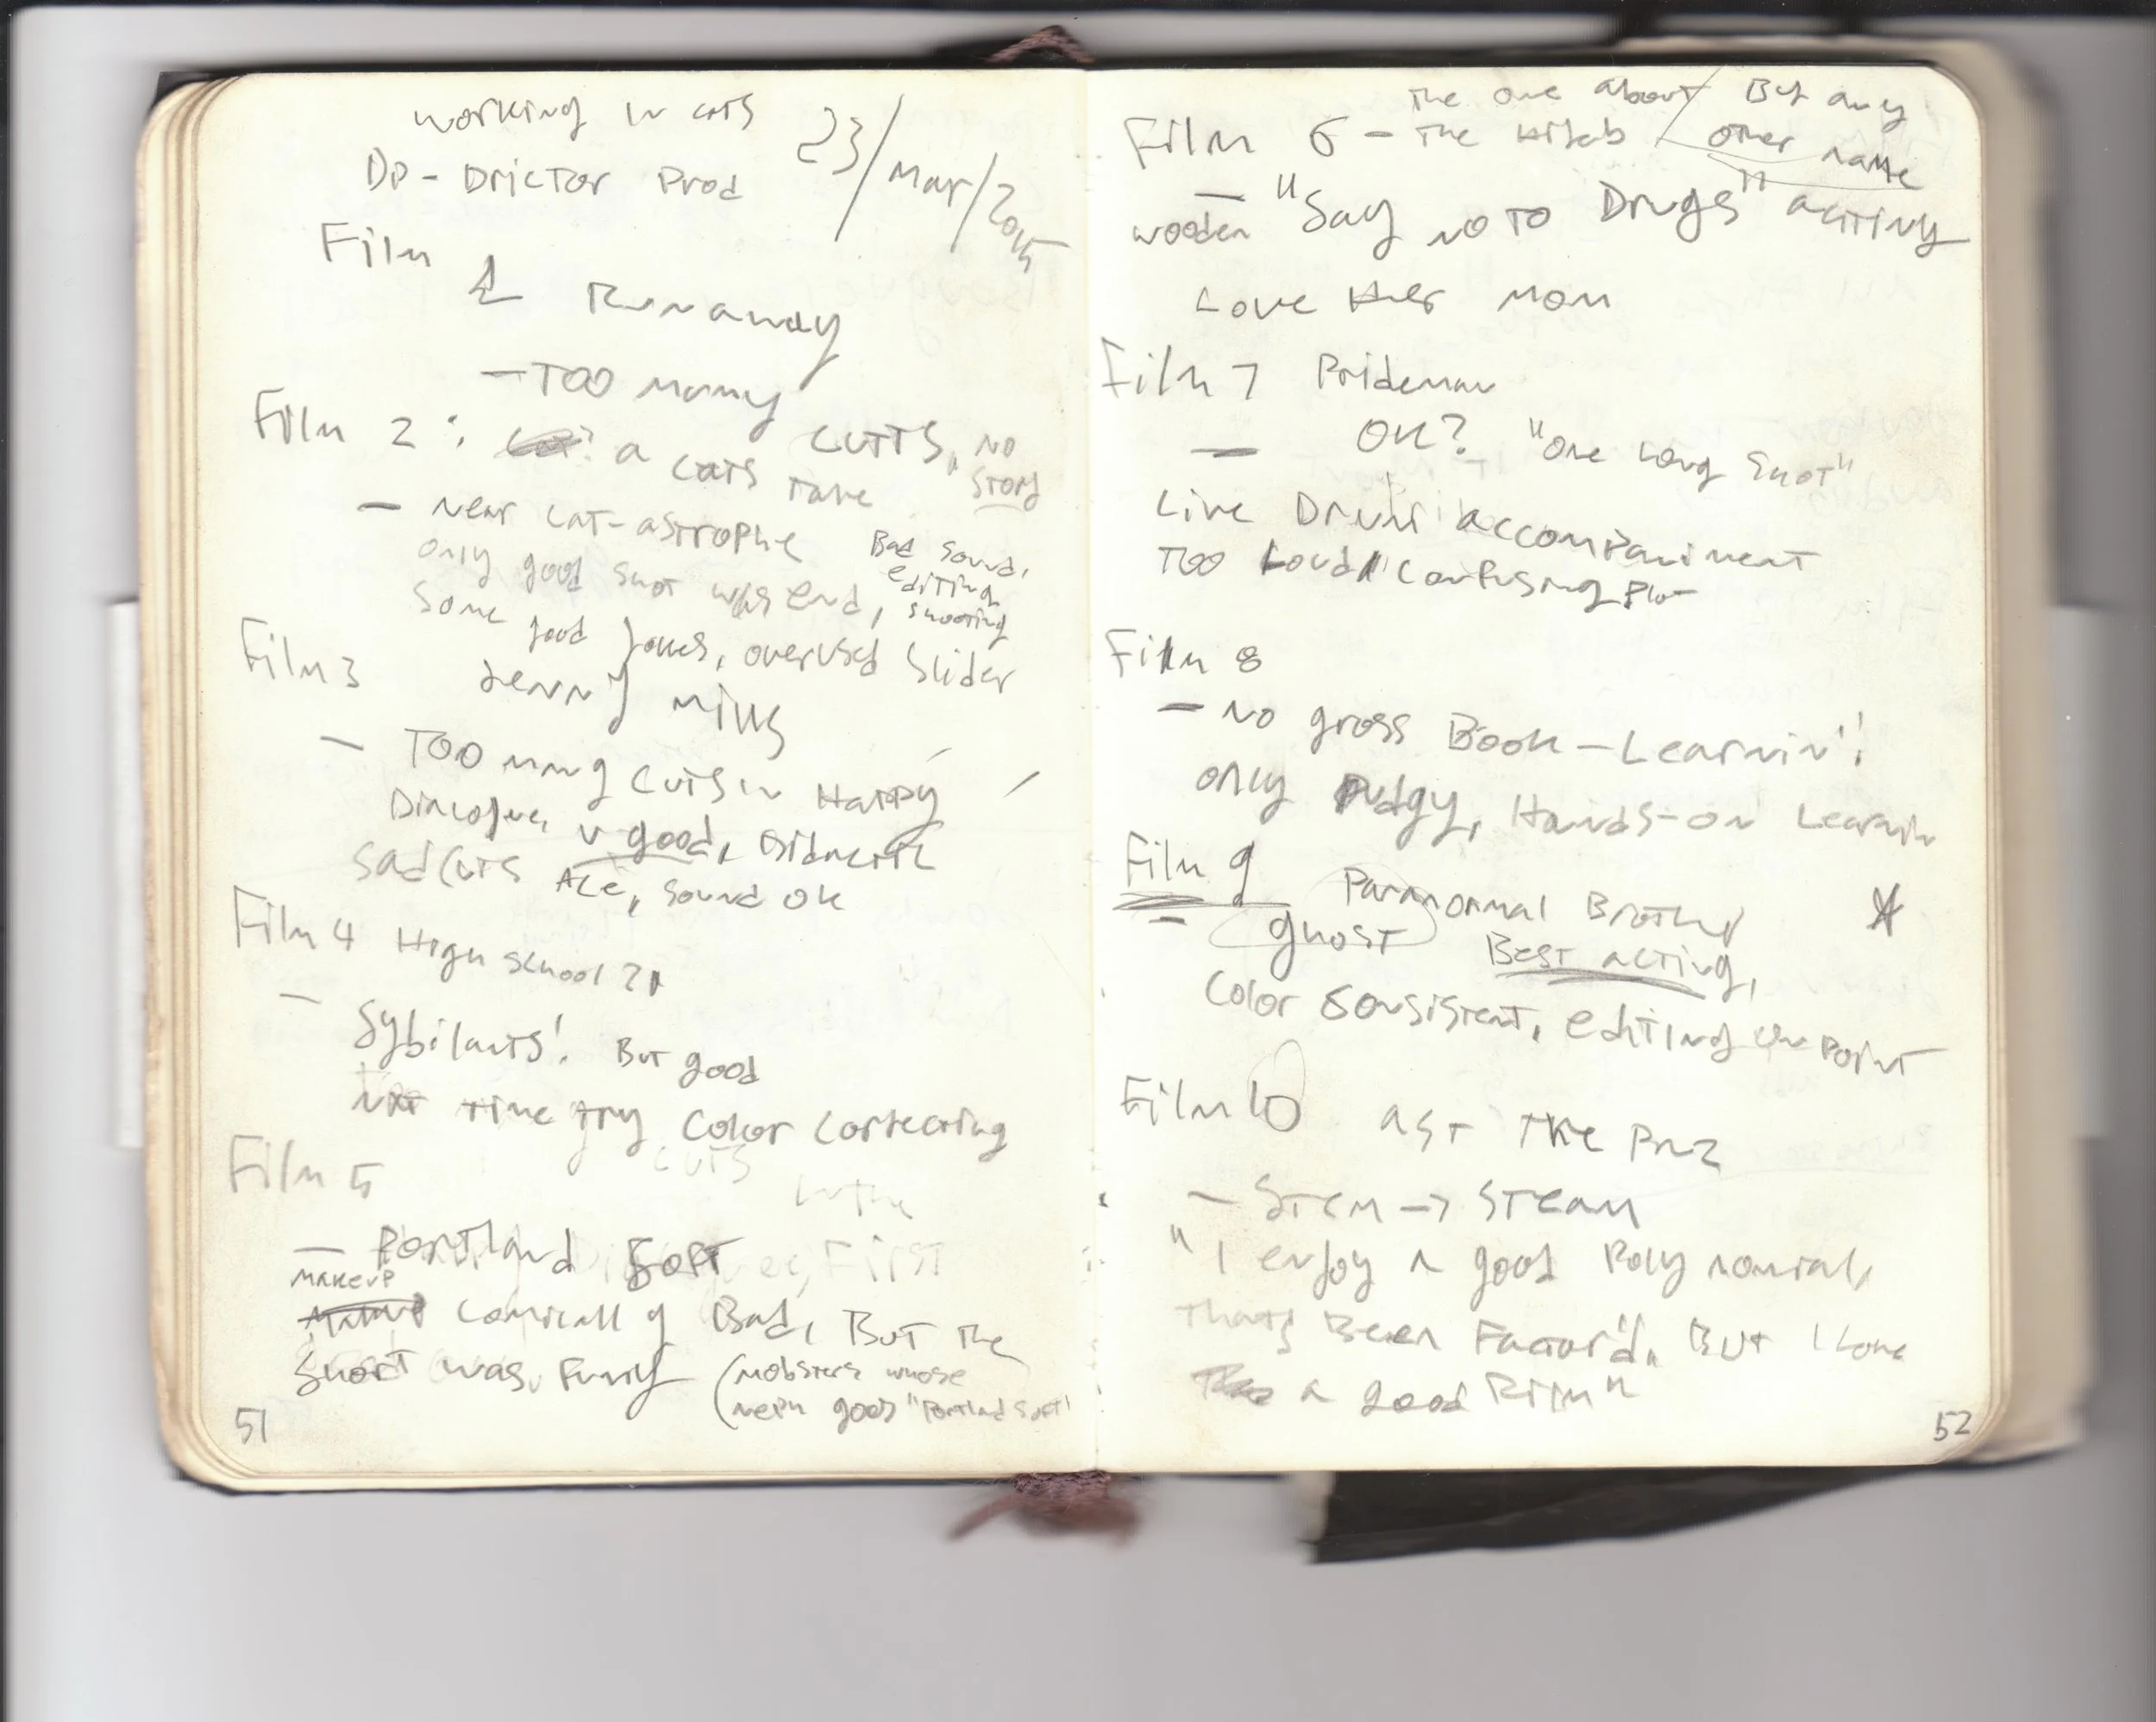 working in cats
DP - Drictor Prod
23/Mar/2015
Film 1 Runaway
- Too many cutts, no story
Film 2: a cats take
- Near cat-astrophe
only good shot was end,
Bad sound, editing, shooting
some good jokes, overused slider
Film 3 Jenny Mills
- Too many cuts in Happy
Dialogue, v good,
sad cuts Ace, sound ok
Film 4 High school
- Sybilants! But good
Nxt time try color correcting
cuts
in the
Film 5
First
- Portland Soft
makeup comically Bad, But the
short was funny (mobsters whose
neph goes "Portland Soft"
51
The one about
Film 6 - The Hijab
By any other name
- wooden "Say no to Drugs" acting
Love Her mom
Film 7 Prideman
- OK? "one long shot"
Live Drum accompaniment
Too Loud/confusing plot
Film 8
- No gross Book-Learnin'!
only Pudgy, Hands-on Learnin
Film 9 Paranormal Brother
- ghost Best acting,
Color consistent, editing on point
Film 10 ast the
- STEM -> STEAM
"I enjoy a good Polynomial,
that's Been Factor'd, But I love
a good Film"
52